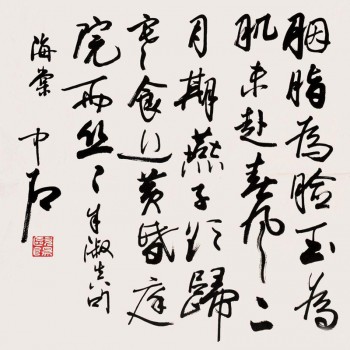 胭脂為臉玉為
肌未赴春風二
月期燕子欲歸
寒食近黄昏庭
院雨丝〻 朱淑真
海棠 中石